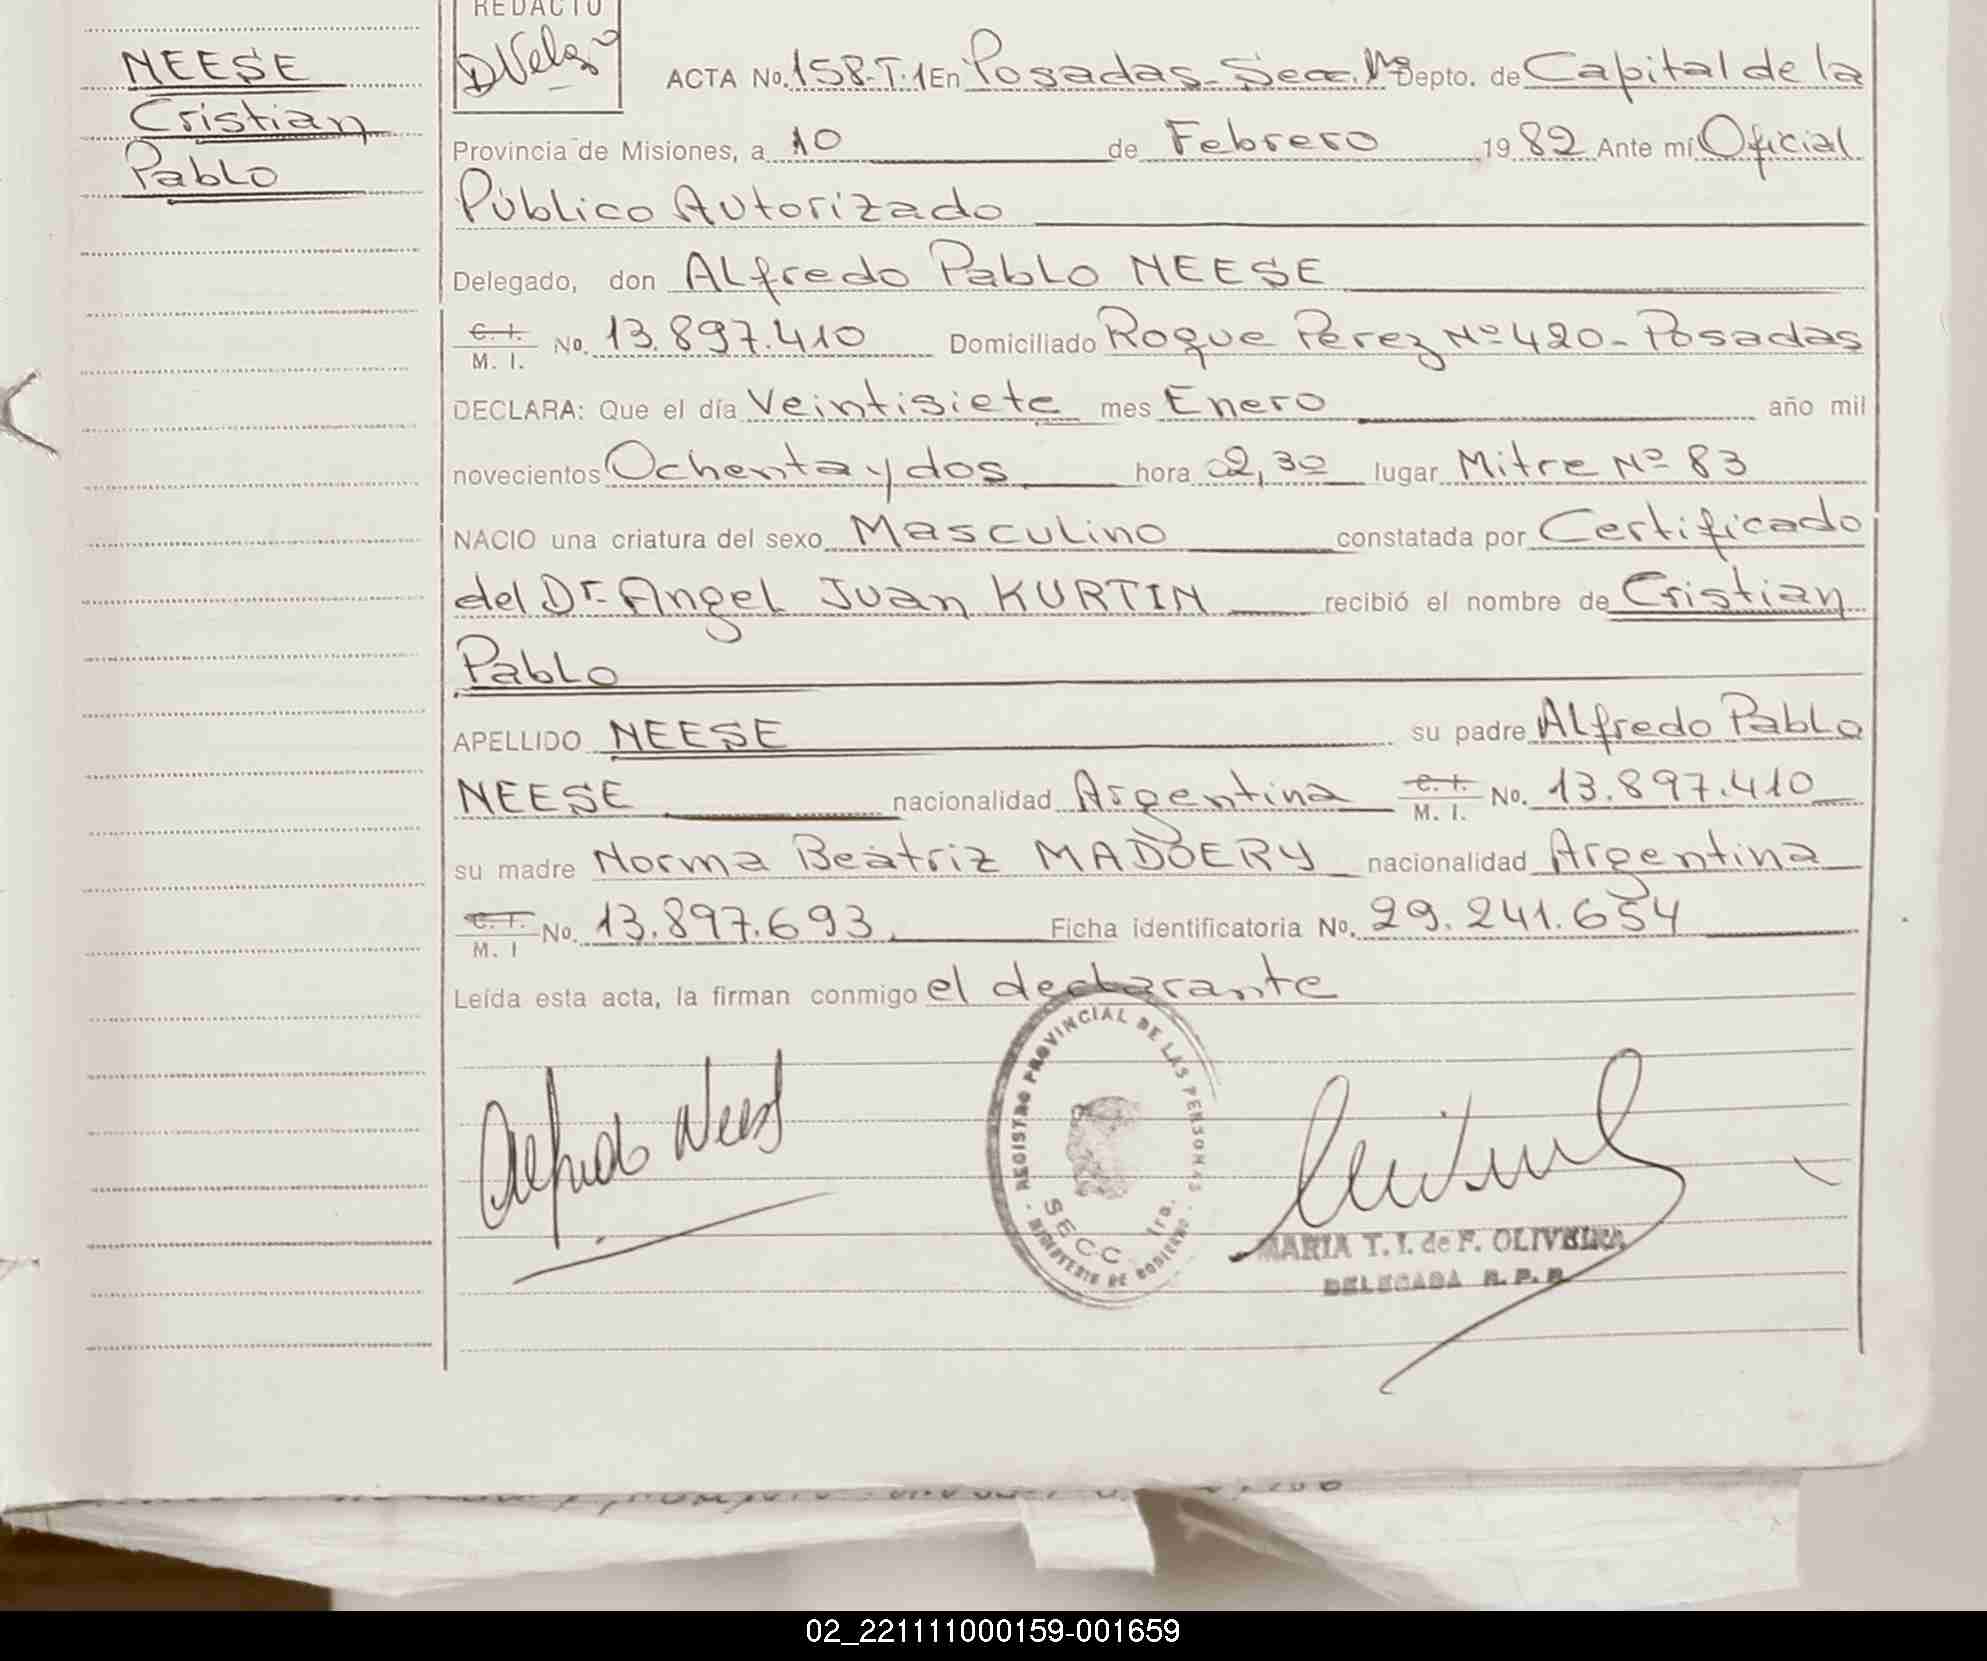 NEESE
Cristian
Pablo
REDACTO
ACTA No. 158-T.1 En Posadas-Secc. 1ª Depto. de Capital de la
Provincia de Misiones, a 10 de Febrero 1982 Ante mí Oficial
Público Autorizado
Delegado, don Alfredo Pablo NEESE
C. I. / M. I. No. 13.897.410 Domiciliado Roque Perez Nº 420 - Posadas
DECLARA: Que el día Veintisiete mes Enero año mil
novecientos Ochenta y dos hora 02,30 lugar Mitre Nº 83
NACIO una criatura del sexo Masculino constatada por Certificado
del Dr. Angel Juan KURTIN recibió el nombre de Cristian
Pablo
APELLIDO NEESE su padre Alfredo Pablo
NEESE nacionalidad Argentina C. I. / M. I. No. 13.897.410
su madre Norma Beatriz MADOERY nacionalidad Argentina
C. I. / M. I No. 13.897.693 Ficha identificatoria No. 29.241.654
Leída esta acta, la firman conmigo el declarante
Alfredo Neese
REGISTRO PROVINCIAL DE LAS PERSONAS
SECC. 1ra.
MINISTERIO DE GOBIERNO
MARIA T. I. de F. OLIVEIRA
DELEGADA R. P. P.
02_221111000159-001659